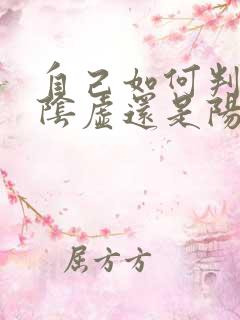 自己如何判
陰虛還是陽
屈方方